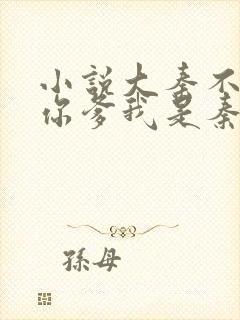 小說大秦不
你爹我是秦
孫母